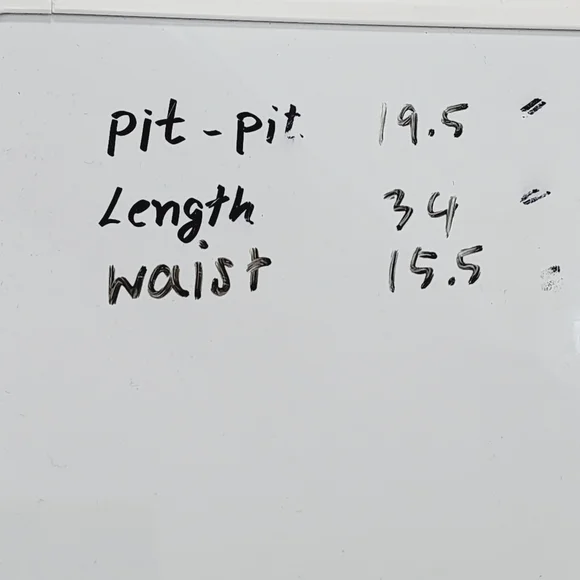 pit-pit 19.5 "
Length 34 "
waist 15.5 "